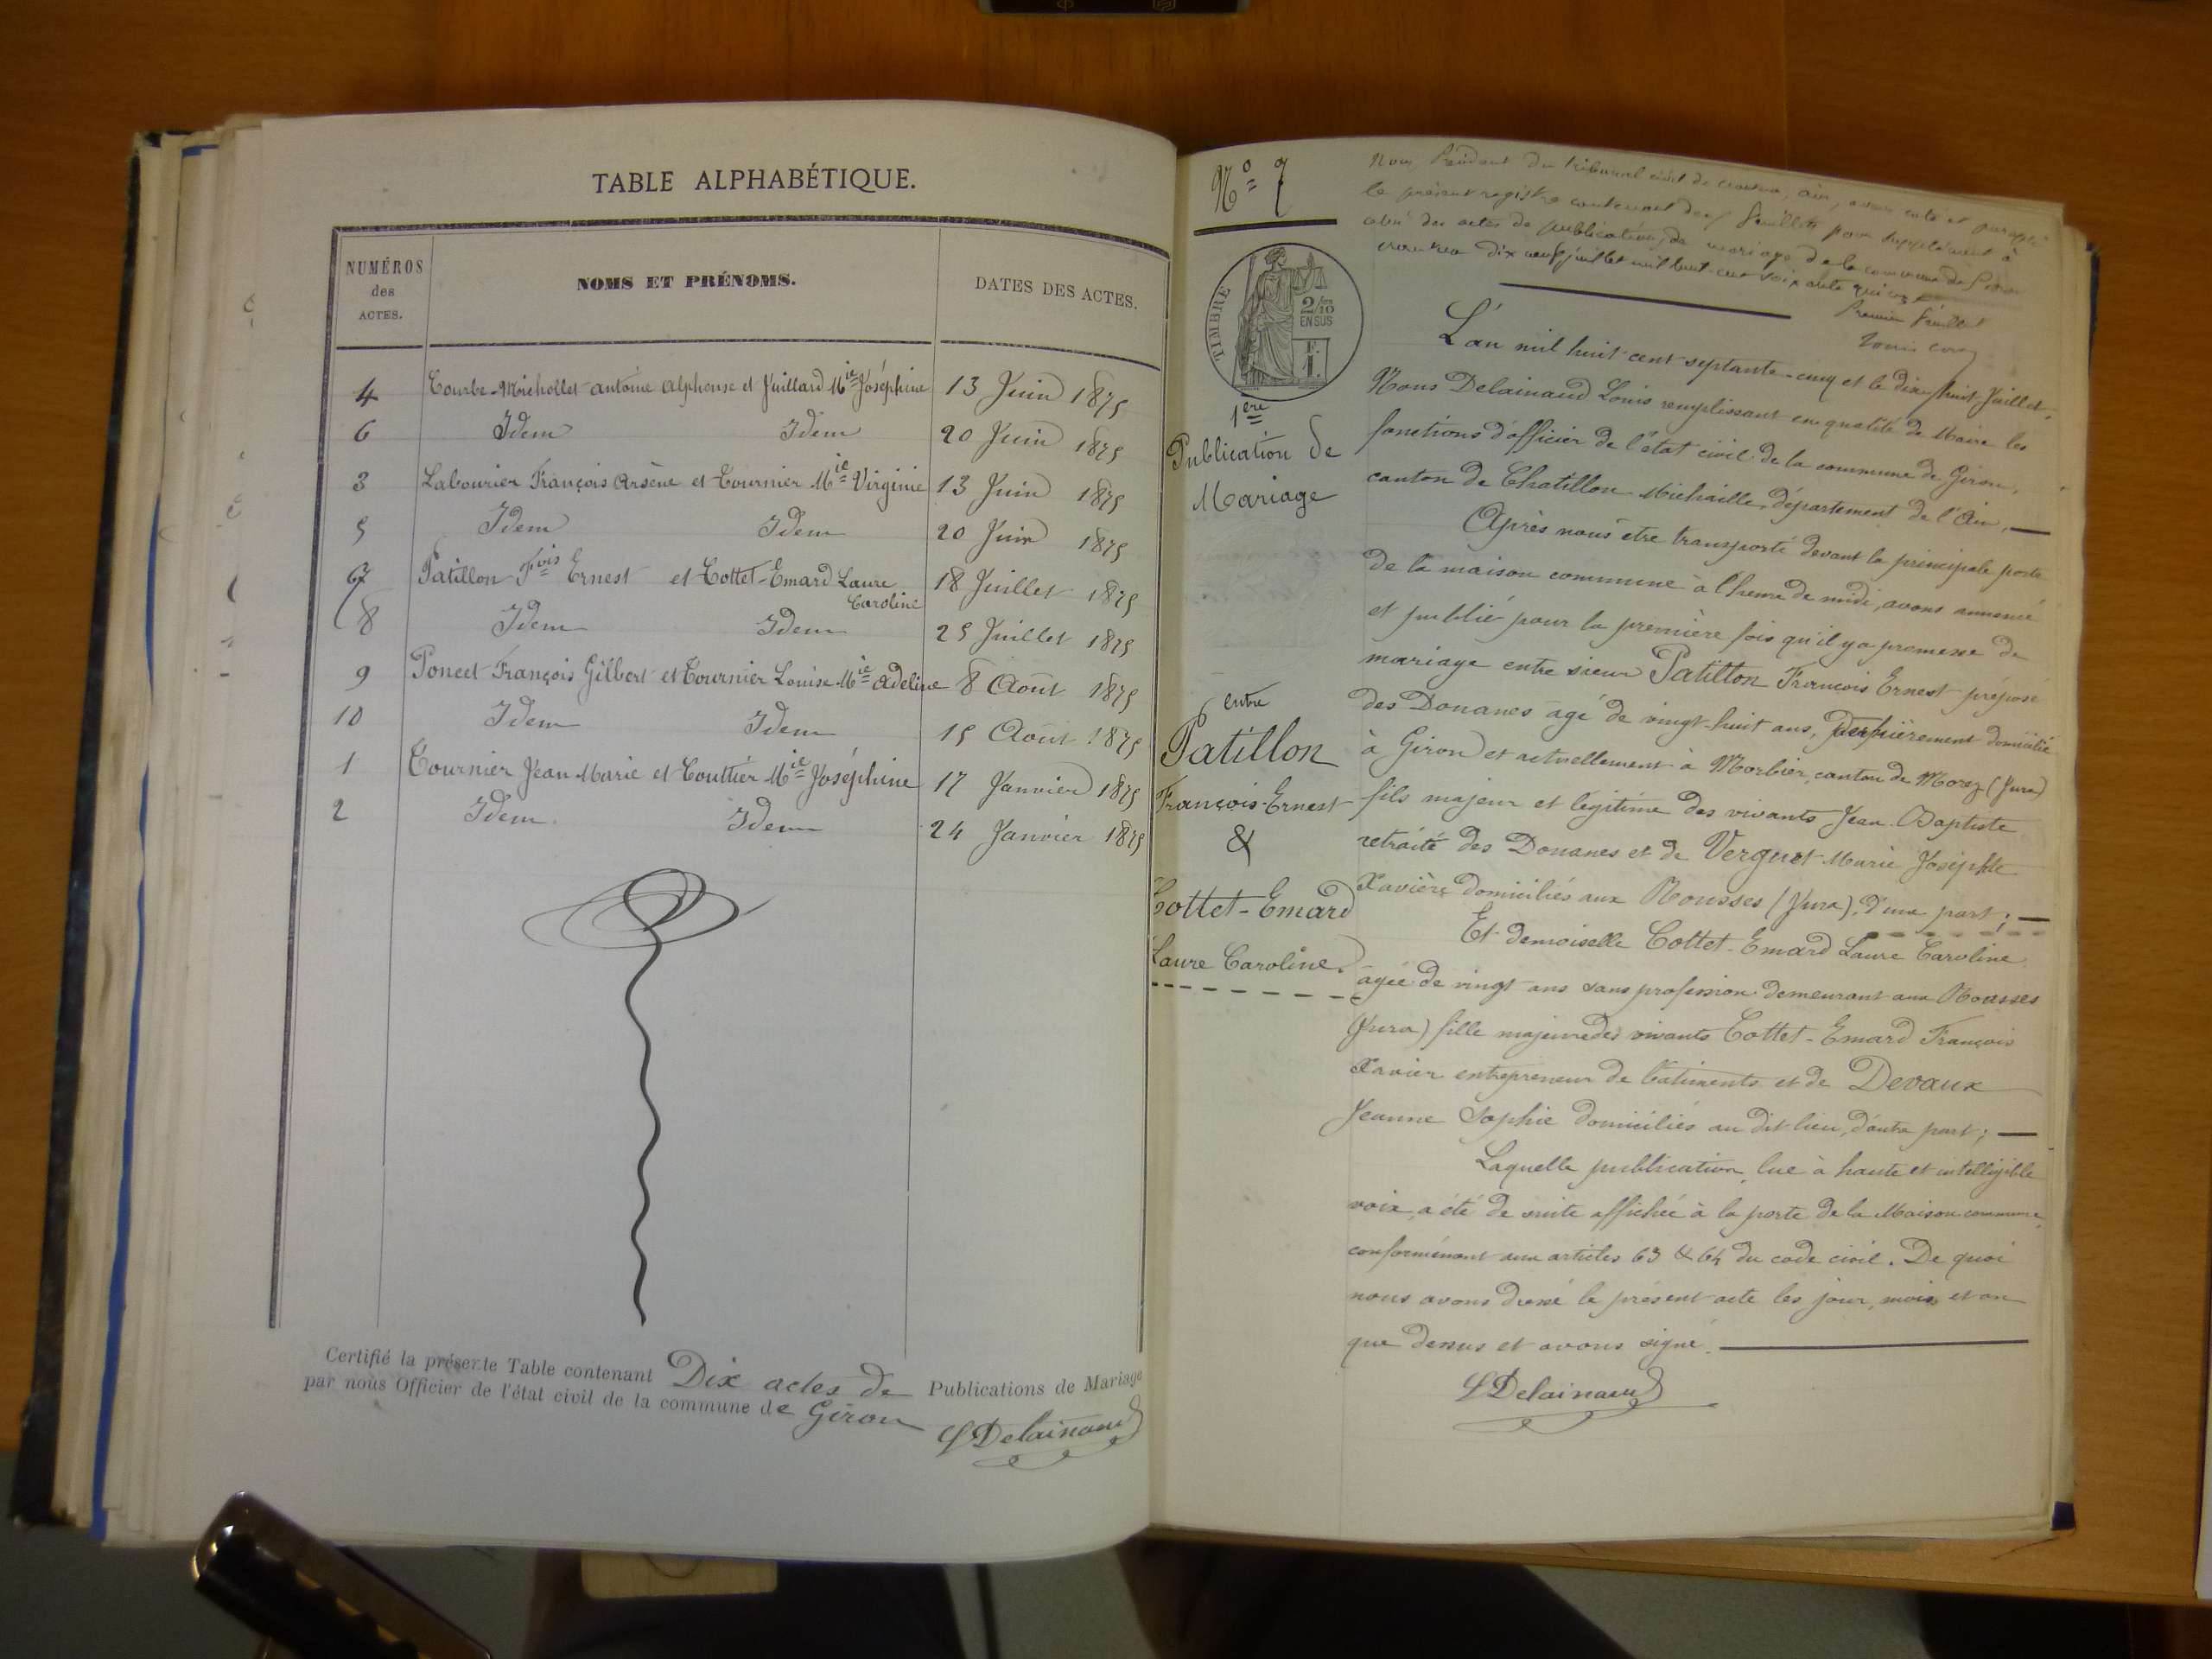 TABLE ALPHABÉTIQUE.
NUMÉROS des ACTES. NOMS ET PRÉNOMS. DATES DES ACTES.
4 Courbe-Michollet antoine alphonse et Juillard Mie Joséphine 13 Juin 1875
6 Idem Idem 20 Juin 1875
3 Labourier François Arsène et Tournier Mie Virginie 13 Juin 1875
5 Idem Idem 20 Juin 1875
7 Patillon Fois Ernest et Cottet-Emard Laure Caroline 18 Juillet 1875
8 Idem Idem 25 Juillet 1875
9 Poncet François Gilbert et Tournier Louise Mie Adeline 8 Août 1875
10 Idem Idem 15 Août 1875
1 Tournier Jean Marie et Couttier Mie Joséphine 17 Janvier 1875
2 Idem Idem 24 Janvier 1875
Certifié la présente Table contenant Dix actes de Publications de Mariage
par nous Officier de l'état civil de la commune de Giron
L Delainaud
No 7
TIMBRE
2/10
EN SUS
F.
1.
1ère
Publication de
Mariage
entre
Patillon
François-Ernest
&
Cottet-Emard
Laure Caroline.
Nous, Président du tribunal civil de ain, avons coté et paraphé
le présent registre contenant deux feuillets pour supplément à
celui des actes de publications de mariage de la commune de Giron
dix neuf juillet mil huit cent soixante quinze
Premier feuillet
L'an mil huit cent septante-cinq et le dix-huit Juillet,
Nous Delainaud Louis remplissant en qualité de Maire les
fonctions d'officier de l'état civil de la commune de Giron,
canton de Chatillon Michaille, département de l'Ain,
Après nous être transporté devant la principale porte
de la maison commune à l'heure de midi, avons annoncé
et publié pour la première fois qu'il y a promesse de
mariage entre sieur Patillon François Ernest préposé
des Douanes agé de vingt-huit ans, dernièrement domicilié
à Giron et actuellement à Morbier, canton de Morez (Jura)
fils majeur et légitime des vivants Jean Baptiste
retraité des Douanes et de Verguet Marie Josephte
Xavière domiciliés aux Rousses (Jura), d'une part;
Et demoiselle Cottet-Emard Laure Caroline
agée de vingt ans sans profession demeurant aux Rousses
(Jura) fille majeure des vivants Cottet-Emard François
Xavier entrepreneur de bâtiments et de Devaux
Jeanne Sophie domiciliés au dit lieu, d'autre part;
Laquelle publication, lue à haute et intelligible
voix, a été de suite affichée à la porte de la Maison commune,
conformément aux articles 63 & 64 du code civil. De quoi
nous avons dressé le présent acte les jour, mois et an
que dessus et avons signé.
L Delainaud